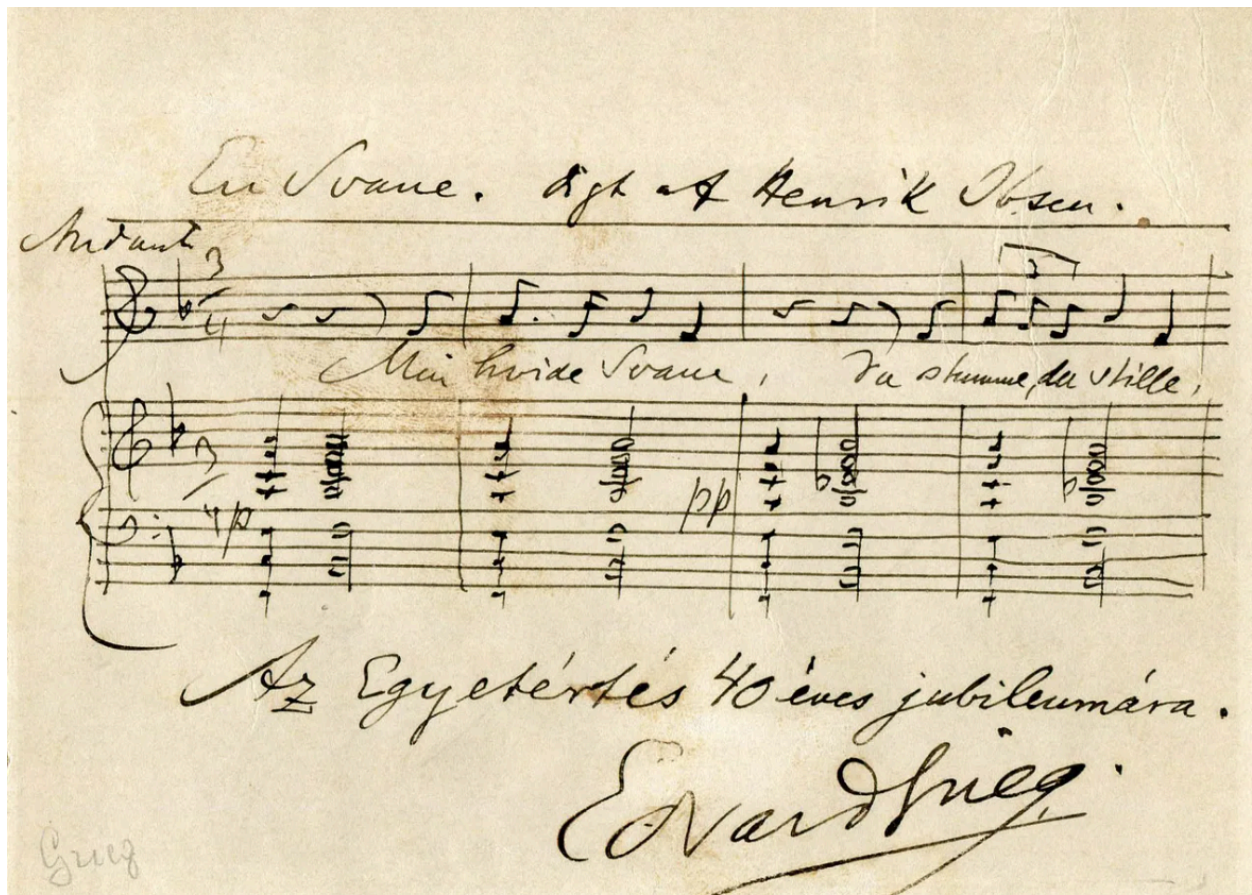 En Svane. digt af Henrik Ibsen.
Andante
3
3
4
Min hvide Svane, du stumme, du stille,
3
4 p
pp
Az Egyetértés 40 éves jubileumára.
Edvard Grieg.
Grieg